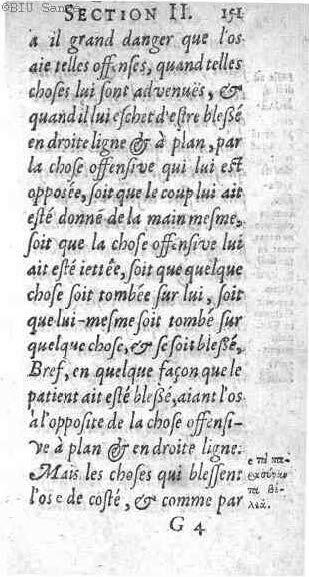 ©BIU Santé
SECTION II. 151
a il grand danger que l'os
aie telles offenses, quand telles
choses lui sont advenuës, &
quand il lui eschet d'estre blessé
en droite ligne & à plan, par
la chose offensive qui lui est
opposée, soit que le coup lui ait
esté donné de la main mesme,
soit que la chose offensive lui
ait esté iettée, soit que quelque
chose soit tombée sur lui, soit
que lui-mesme soit tombé sur
quelque chose, & se soit blessé,
Bref, en quelque façon que le
patient ait esté blessé, aiant l'os
à l'opposite de la chose offensi-
ve à plan & en droite ligne.
Mais les choses qui blessent
l'os e de costé, & comme par
e
G 4